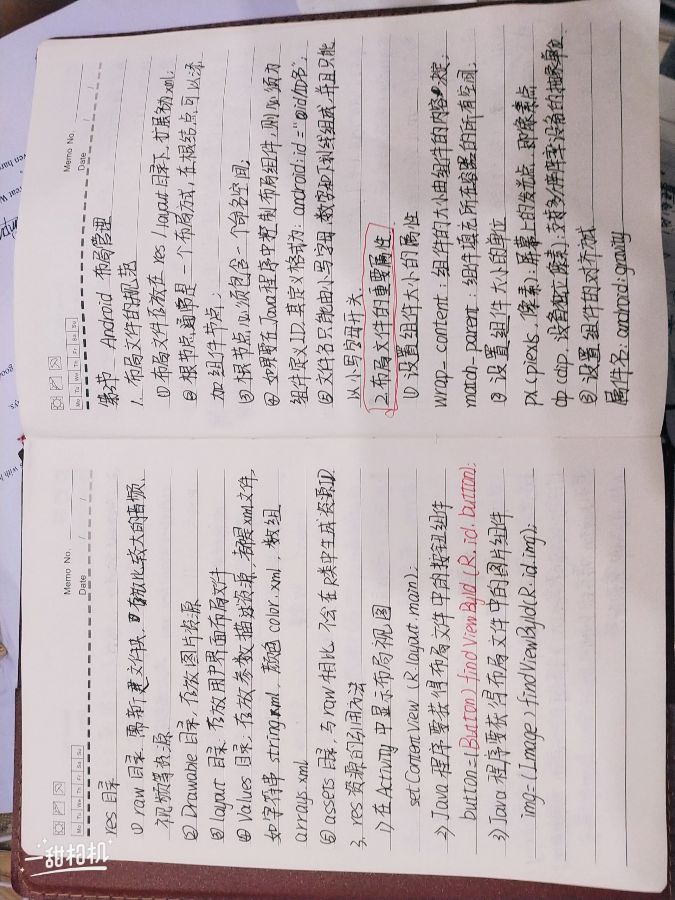 Memo No.
Date / /
Mo Tu We Th Fr Sa Su
res 目录
① raw 目录 需新建文件夹, 存放比较大的音频、
视频等资源
② Drawable 目录, 存放图片资源
③ layout 目录 存放用户界面布局文件
④ Values 目录: 存放参数描述资源, 都是xml文件,
如字符串 string.xml. 颜色 color.xml. 数组
arrays.xml
⑤ assets 目录, 与 raw 相比 不会在R类中生成资源ID
3. res 资源的引用方法
1) 在 Activity 中显示布局视图
setContentView (R.layout.main);
2) Java 程序要获得布局文件中的按钮组件
button=(Button) findViewById (R.id.button);
3) Java 程序要获得布局文件中的图片组件
img=(Image) findViewById(R.id.img);
Memo No.
Date / /
Mo Tu We Th Fr Sa Su
节 Android 布局管理
1. 布局文件的规范
① 布局文件存放在 res/layout 目录下, 扩展名为xml;
② 根节点通常是一个布局方式, 在根结点可以添
加组件节点;
③ 根节点必须包含一个命名空间;
④ 如果要在Java程序中控制布局组件, 则必须为
组件定义ID, 其定义格式为: android:id="@id/
⑤ 文件名只能由小写字母、数字和下划线组成, 并且只能
以小写字母开头.
2. 布局文件的重要属性
① 设置组件大小的属性
wrap-content: 组件的大小由组件的内容决定;
match-parent: 组件填充所在容器的所有空间;
② 设置组件大小的单位
px (pixels, 像素): 屏幕上的发光点, 即像素点
dp (dip, 设备独立像素): 支持多
③ 设置组件的对齐方式
属性名: android:gravity
一甜相机